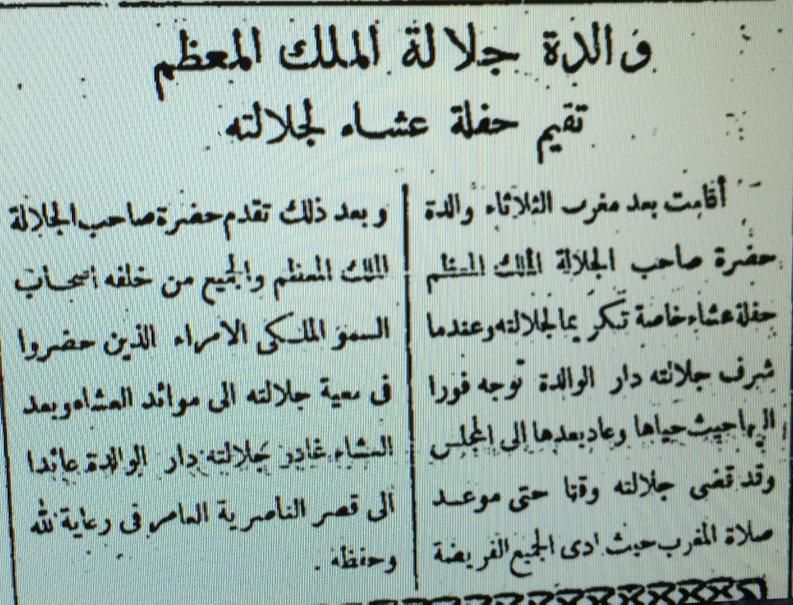 والدة جلالة الملك المعظم
تقيم حفلة عشاء لجلالته
أقامت بعد مغرب الثلاثاء والدة
حضرة صاحب الجلالة الملك المعظم
حفلة عشاء خاصة تكريما لجلالته وعندما
شرف جلالته دار الوالدة توجه فورا
اليها حيث حياها وعاد بعدها الى المجلس
وقد قضى جلالته وقتا حتى موعد
صلاة المغرب حيث ادى الجميع الفريضة
وبعد ذلك تقدم حضرة صاحب الجلالة
الملك المعظم والجميع من خلفه اصحاب
السمو الملكى الامراء الذين حضروا
فى معية جلالته الى موائد العشاء وبعد
العشاء غادر جلالته دار الوالدة عائدا
الى قصر الناصرية العامر فى رعاية لله
وحفظه .